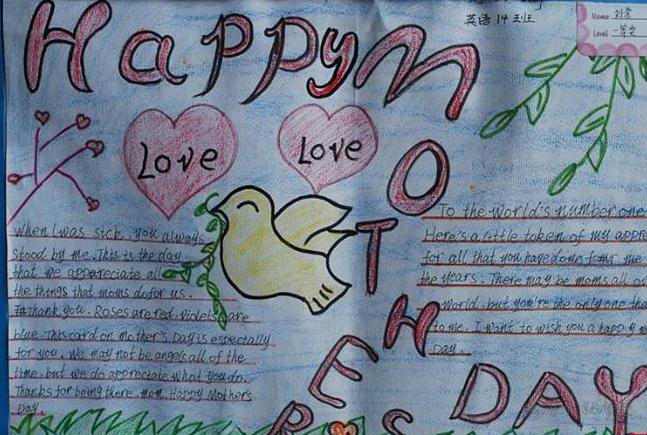 Happy MOTHERS DAY
英语14班
Name 刘
Level 一等奖
Love
Love
When I was sick, you always
stood by me. This is the day
that we appareciate all
the things that moms do for us.
Thank you. Roses are red. Violets are
blue. This card on mother's Day is especially
for you. We may not be angels all of the
time, but we do appreciate what you do.
Thanks for being there, mom. Happy Mother's
Day.
To the world's number one
Here's a little token of my appre
for all that you have done for me
the years. There may be moms all ov
world, but you're the only one tha
to me. I want to wish you a happy m
Day.